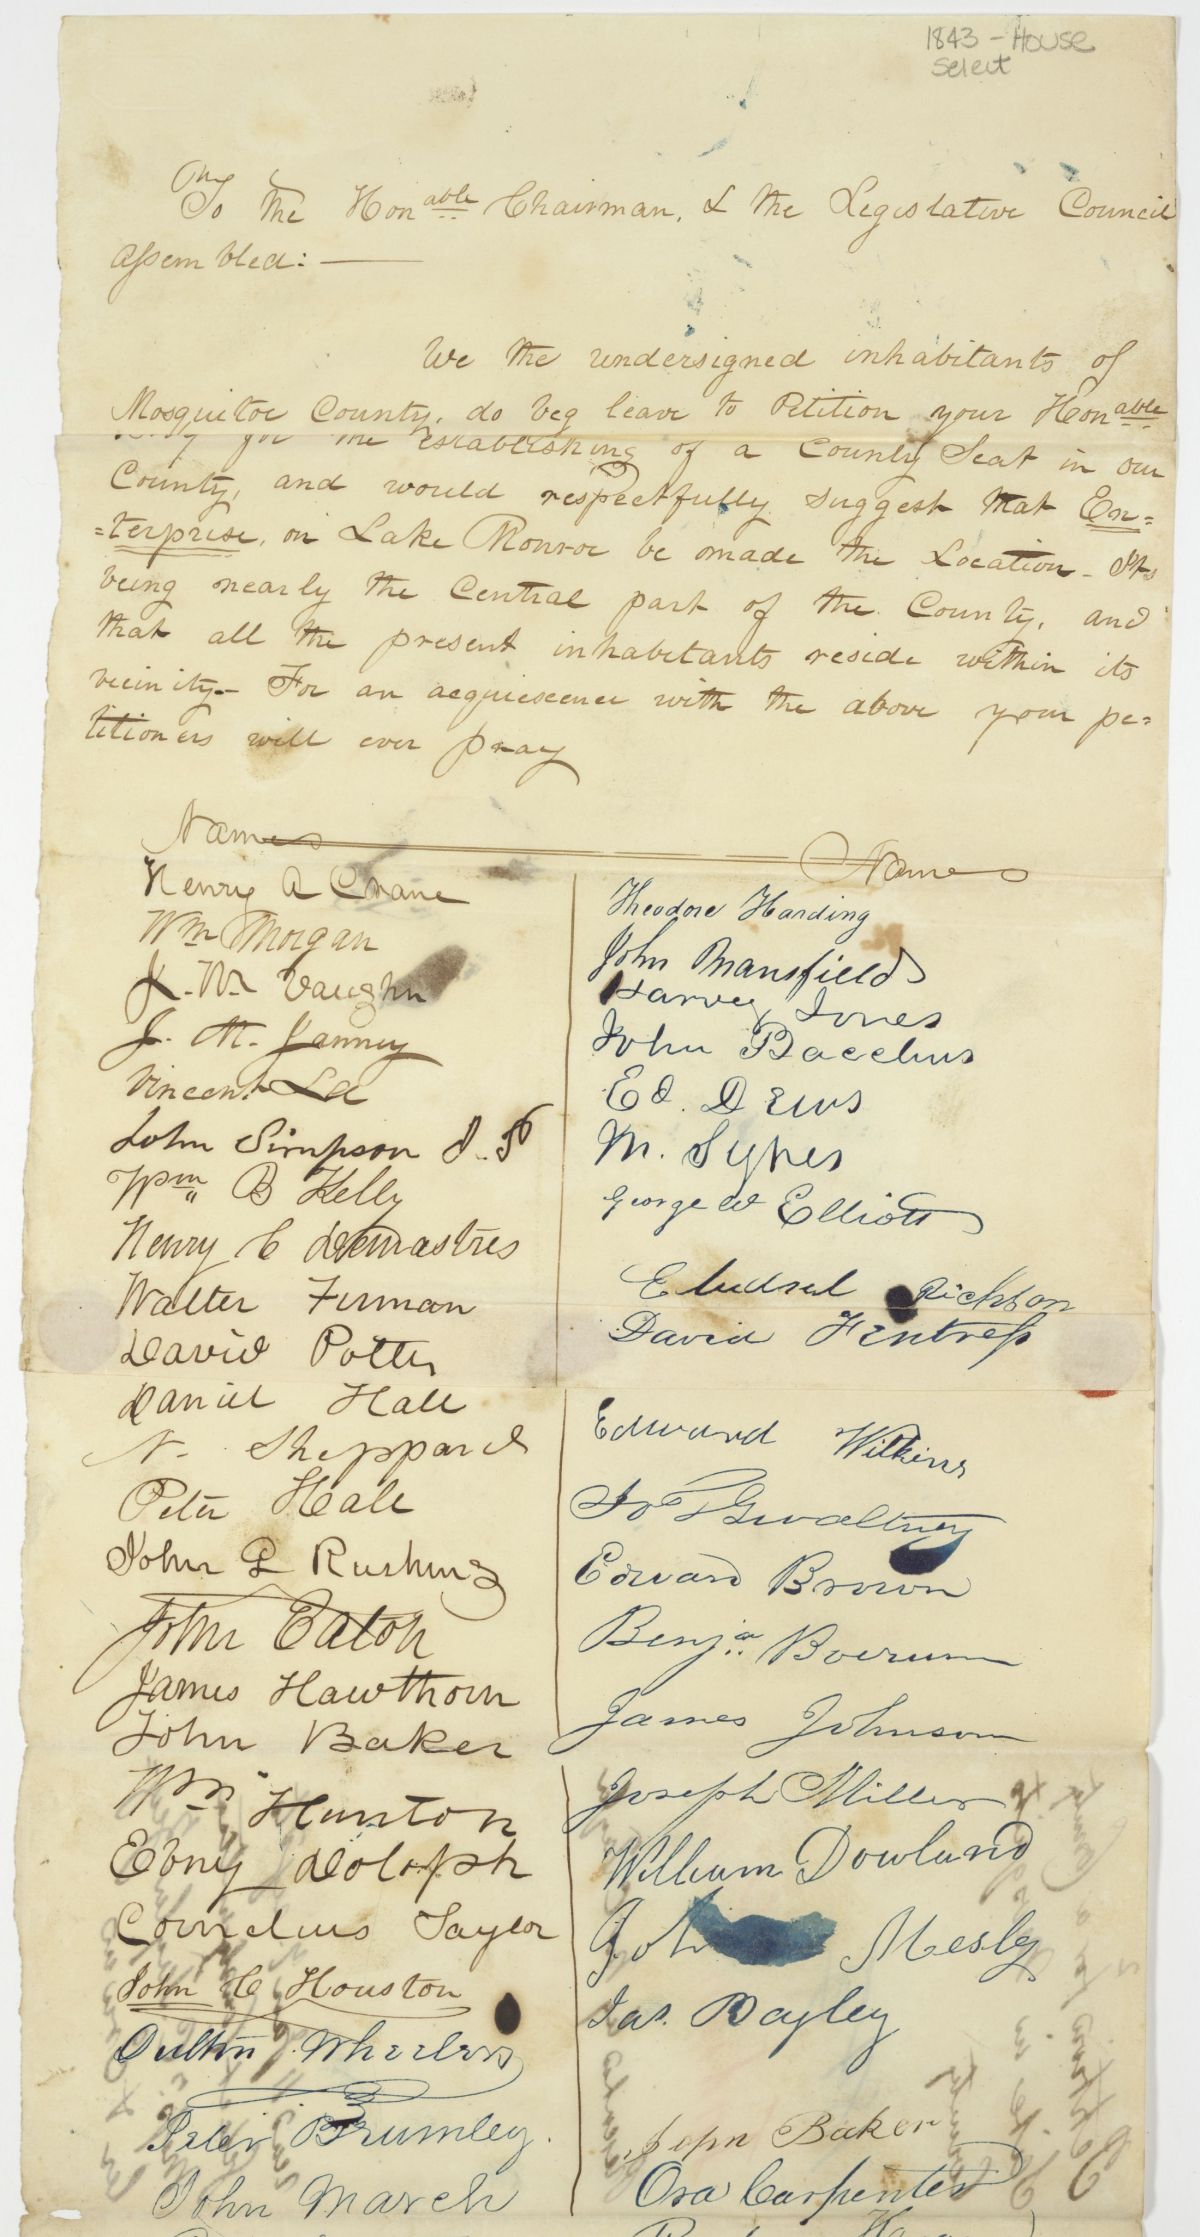 1843 - House
Select
To the Honable Chairman, & the Legislative Council
Assembled: —
We the undersigned inhabitants of
Mosquitoe County, do beg leave to Petition your Honable
Body for the establishing of a County Seat in our
County, and would respectfully suggest that En=
=terprise, on Lake Monroe be made the Location - Its
being nearly the Central part of the County, and
that all the present inhabitants reside within its
vicinity - For an acquiescence with the above your pe=
titioners will ever pray
Names
Henry A Crane
Wm Morgan
J. M. Janney
Vincent Lee
John Simpson J. P
Wm B Kelly
Henry C Demastres
Walter Firman
David Potter
Daniel Hall
N. Sheppard
Peter Hale
John G Rushing
John Eaton
James Hawthorn
John Baker
Wm Hunton
Ebny Doloph
Cornelius Taylor
John C Houston
Wheeler
Peter Brumley.
John March
Names
Theodore Harding
John Mansfield
Harvey Jones
John Bacchus
Ed. Dews
M. Sykes
George W Elliott
David Fentress
Edward Wilkins
Gwaltney
Edward Brown
Benja Boerum
James Johnson
Joseph Miller
William Dowland
Joh Mesly
Jas. Bayley
John Baker
Ora Carpenter